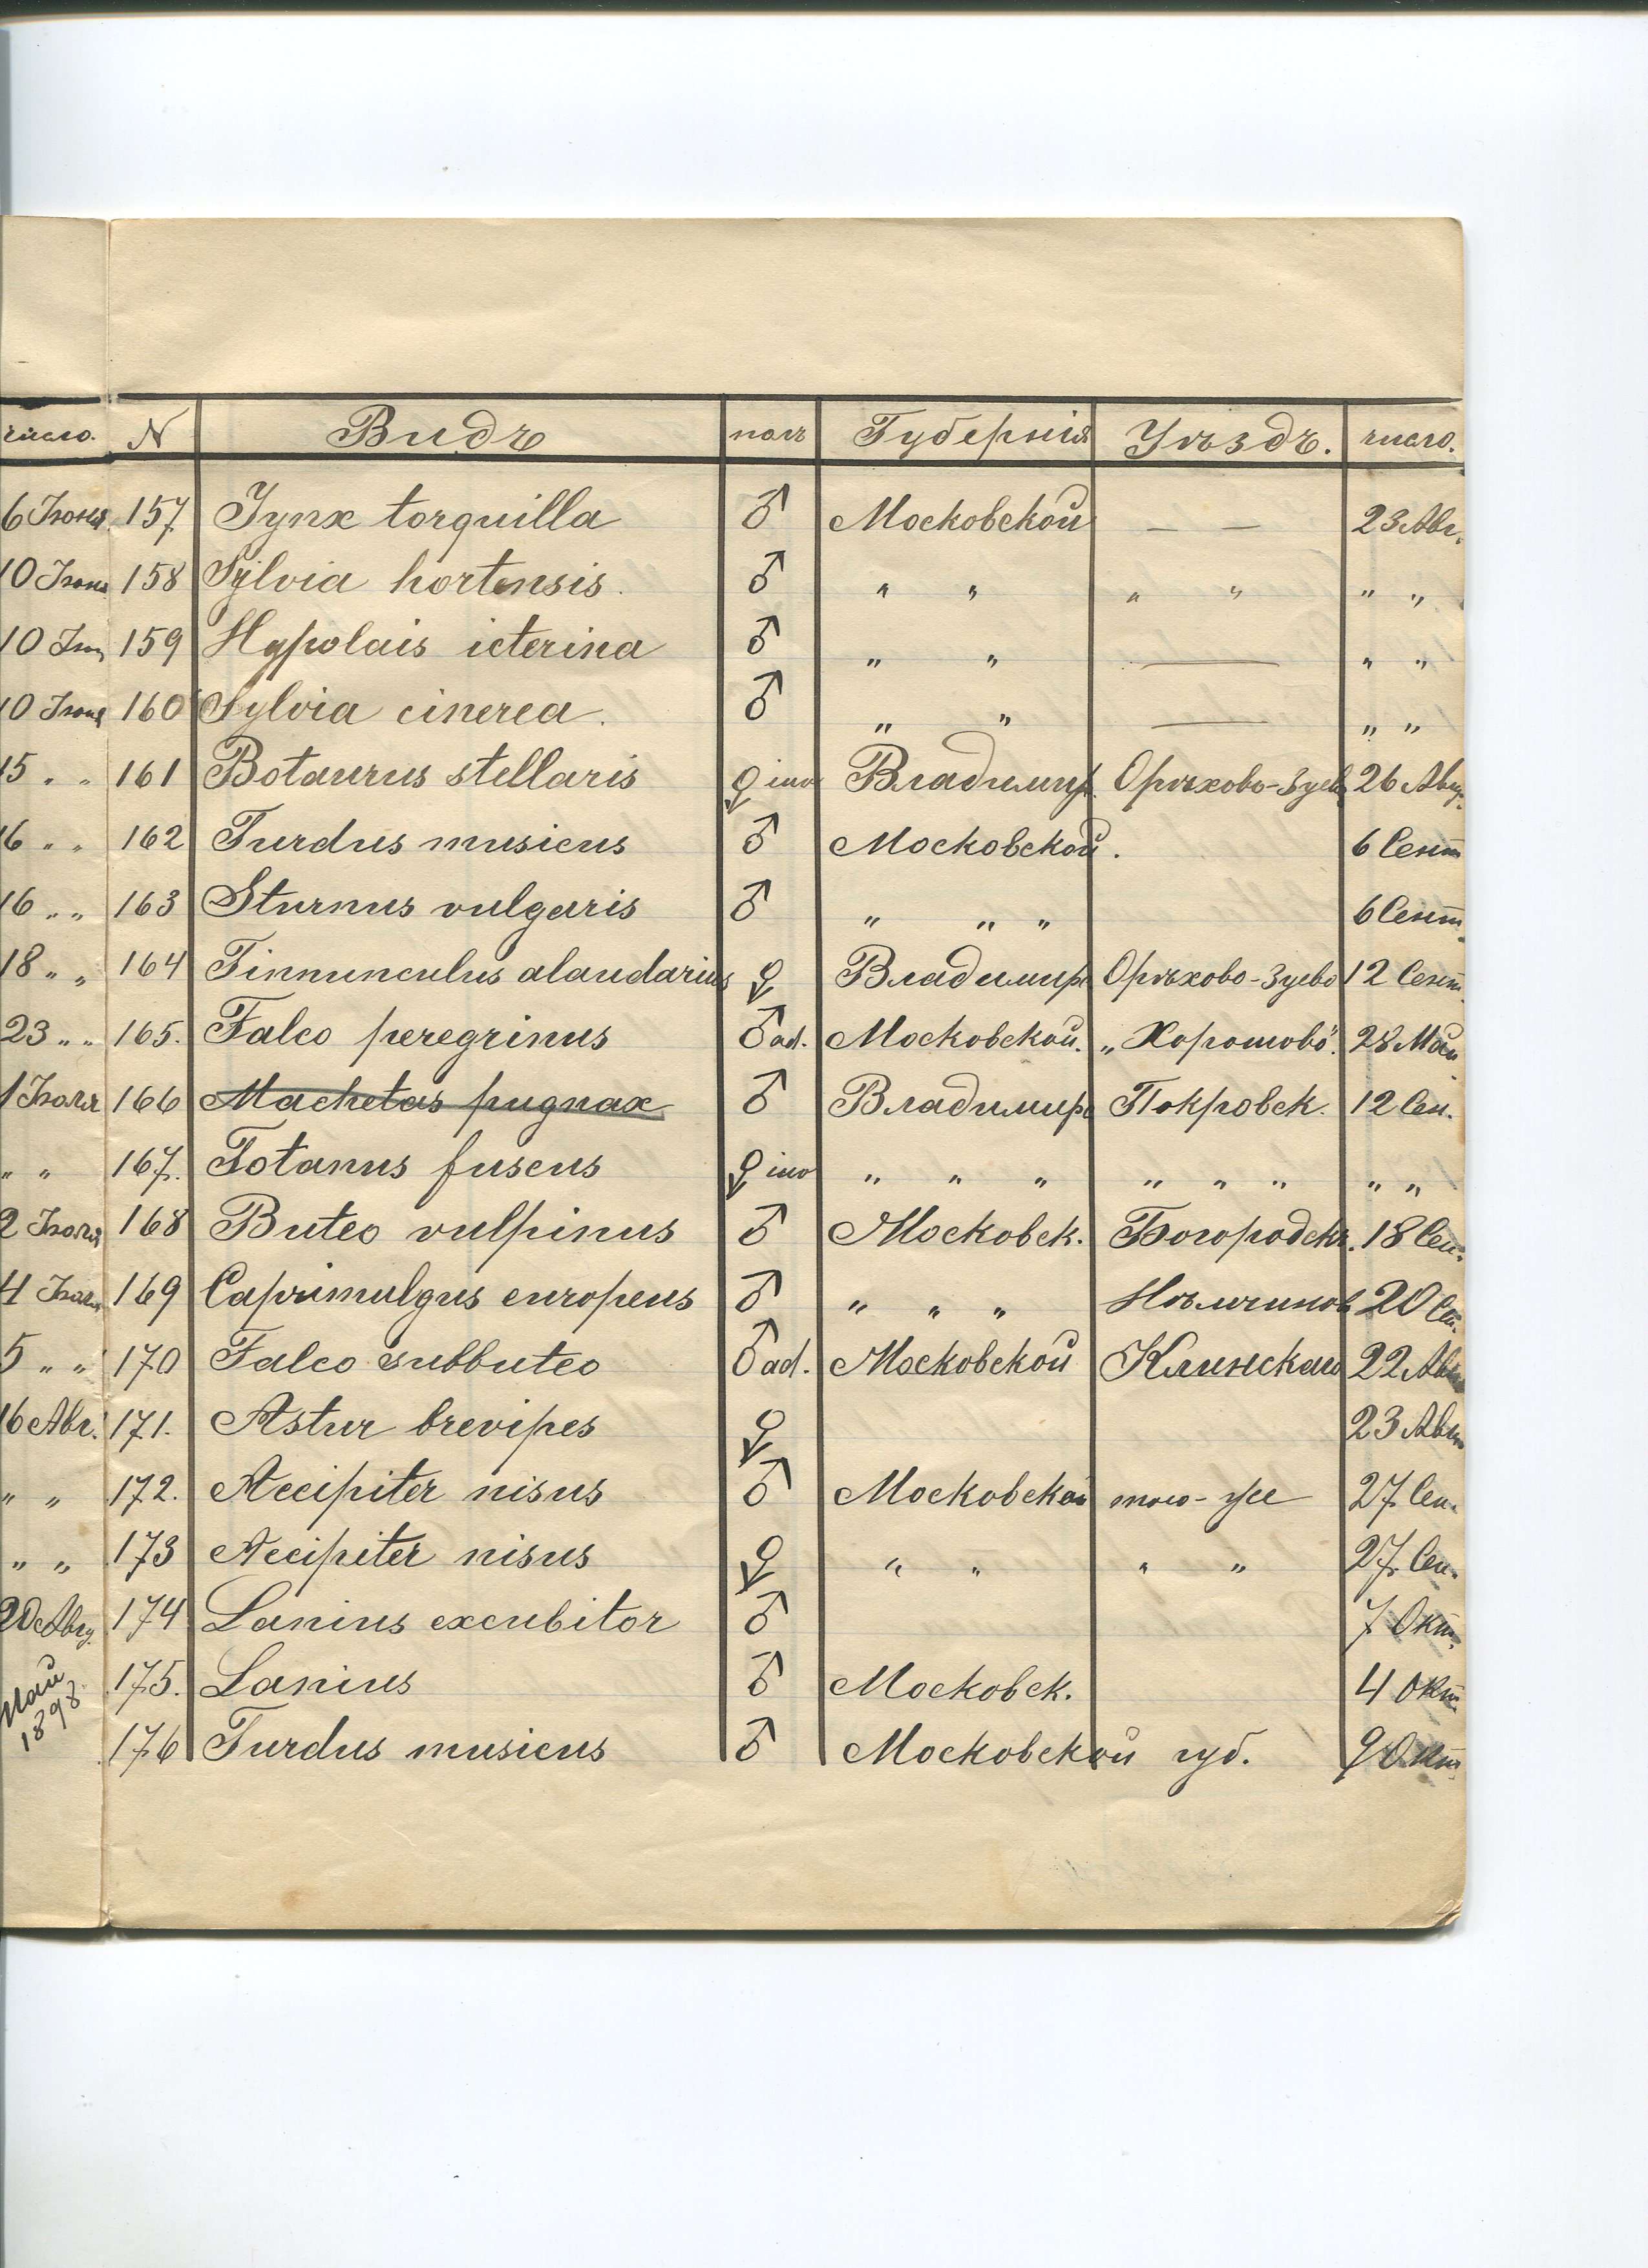 число. N Видъ полъ Губернія Уѣздъ. число.
6 Іюня 157 Jynx torquilla ♂ Московской — — 23 Авг.
10 Іюня 158 Sylvia hortensis. ♂ " " " " " "
10 Іюн 159 Hypolais icterina ♂ " " — " "
10 Іюня 160 Sylvia cinerea. ♂ " " — " "
15 " " 161 Botaurus stellaris ♀ Владимир. Орѣхово-Зуев 26 Авг.
16 " " 162 Turdus musicus ♂ Московской. 6 Сент
16 " " 163 Sturnus vulgaris ♂ " " " 6 Сент.
18 " " 164 Tinnunculus alaudarius ♀ Владимир Орѣхово-Зуево 12 Сент.
23 " " 165. Falco peregrinus ♂ ad. Московской. „Хорошово". 28 Мая
1 Іюля 166 Machetas pugnax ♂ Владимир Покровск. 12 Сен.
" " 167. Totanus fuscus ♀ " " " " " " " "
2 Іюля 168 Buteo vulpinus ♂ Московск. Богородск. 18 Сен.
4 Іюля 169 Caprimulgus europeus ♂ " " " 20 Сен.
5 " " 170 Falco subbuteo ♂ ad. Московской Клинскаго 22 Авг
16 Авг. 171. Astur brevipes ♀ 23 Авг
" " 172. Accipiter nisus ♂ Московской того-же 27 Сен.
" " 173 Accipiter nisus ♀ " " " " 27 Сен.
20 Авг. 174 Lanius excubitor ♂ 7 Окт.
Май 1898 175. Lanius ♂ Московск. 4 Окт
176 Turdus musicus ♂ Московской губ. 9 Окт